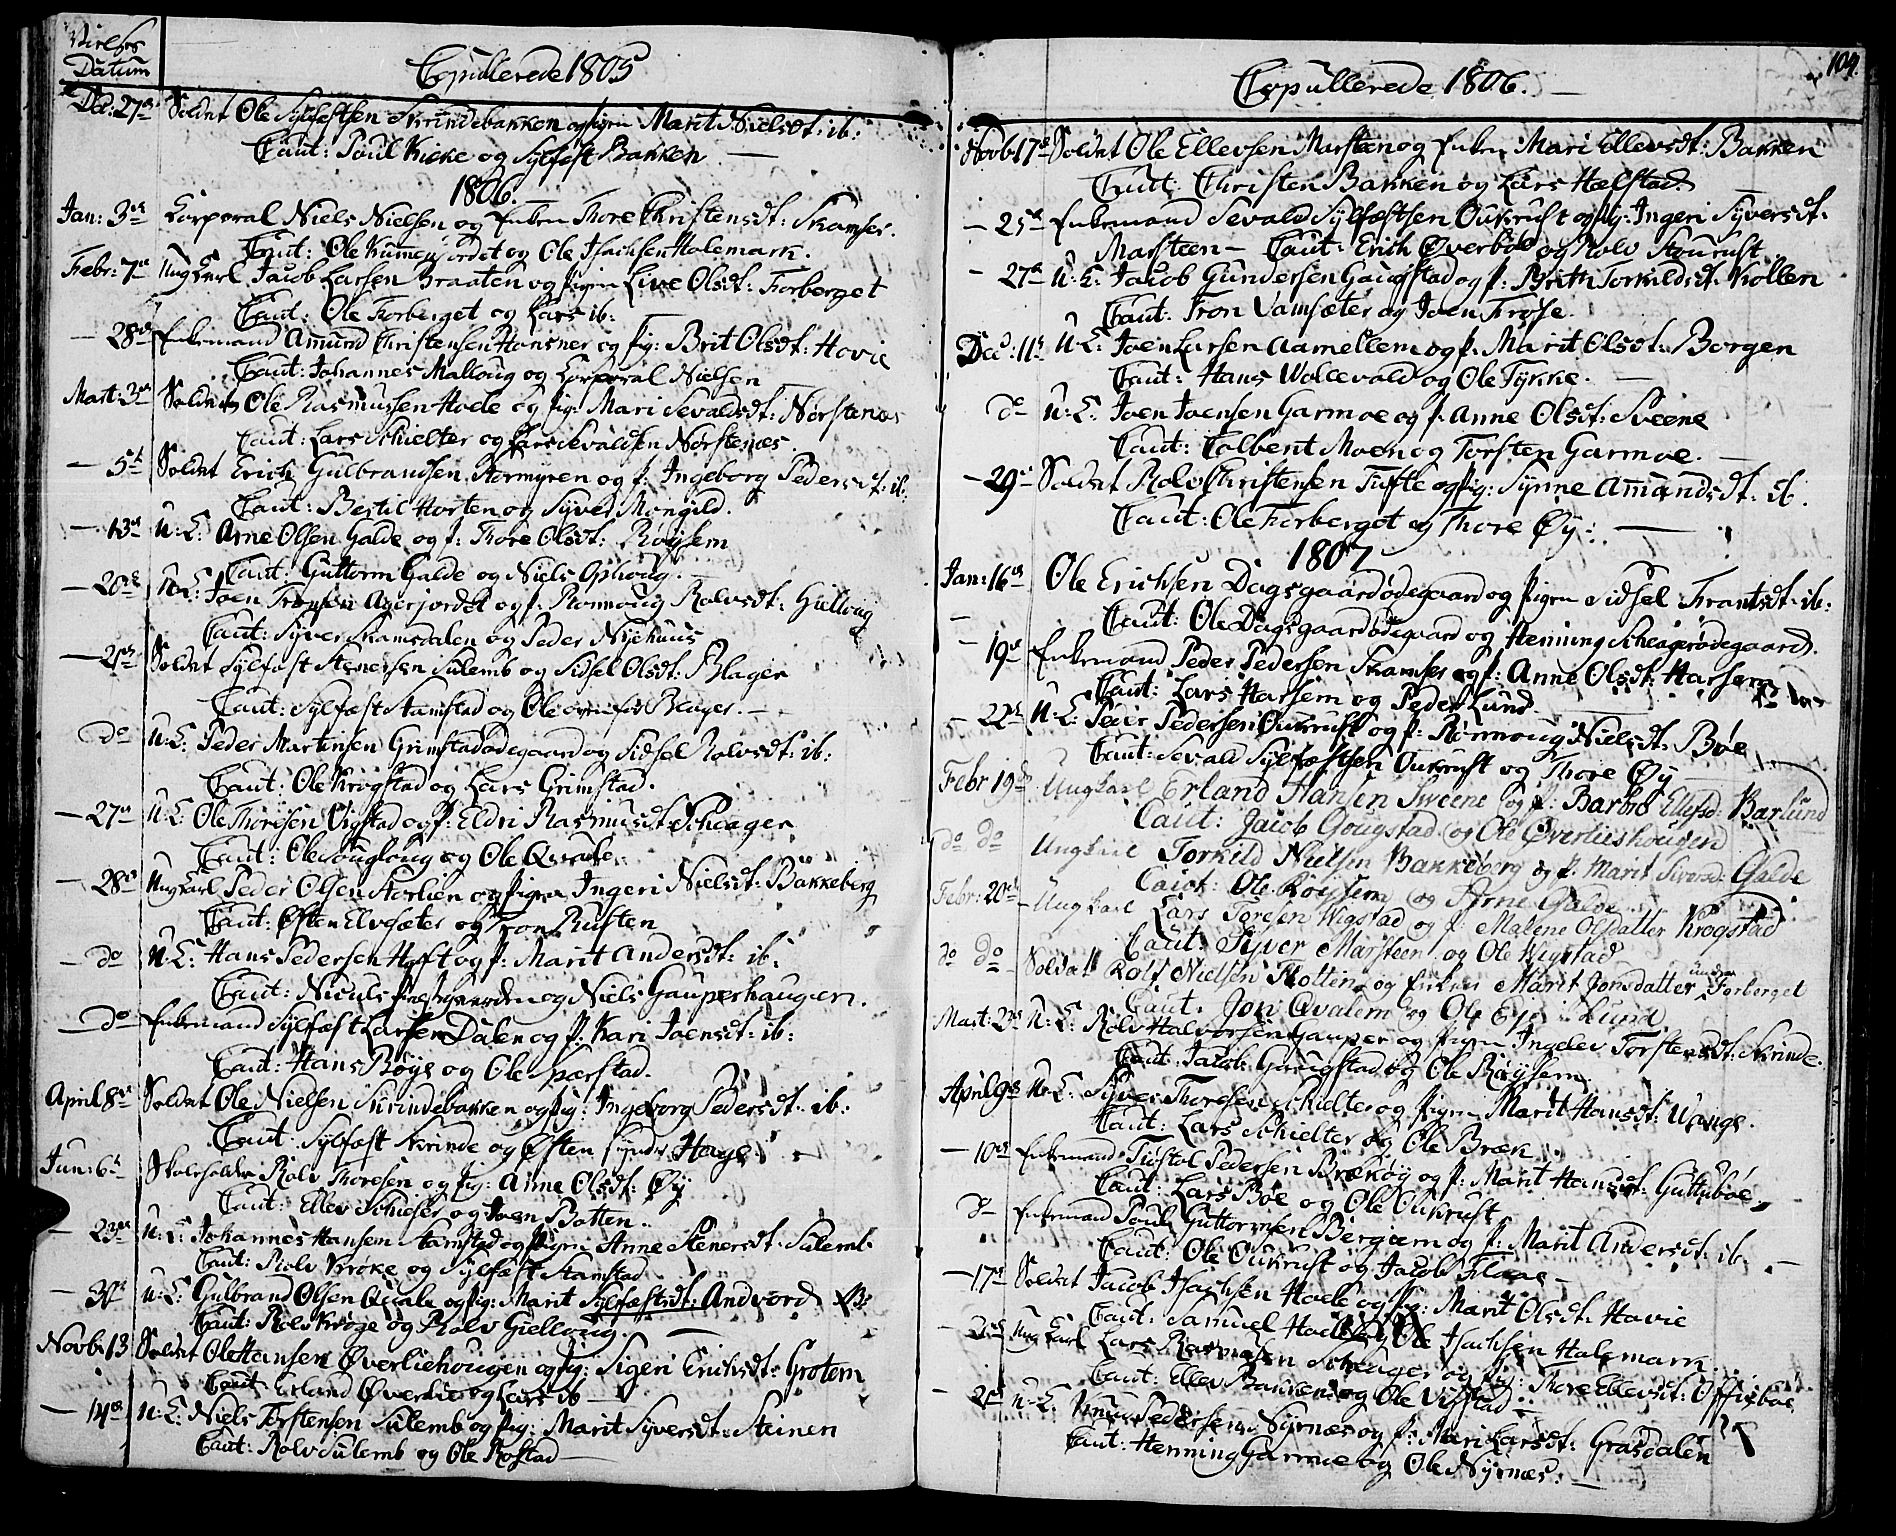 Vielses
Datum
Copulerede 1805
Dec: 27de Soldat Ole Sylfestsen Skrindebakken og pigen Marit Nielsdt: ib:
Caut: Poul Kicke og Sylfest Bakken
1806.
Jan: 3de Corporal Niels Nielsen og Enken Thore Christensdt: Skamser.
Caut: Ole Kummensjordet og Ole Isachsen Halemark.
Febr: 7de Ung Karl Jacob Larsen Braaten og pigen Live Olsdt: Forberget
Caut: Ole Forberget og Lars ib:
— 28de Enkemand Amund Christensen Hansner og pig: Brit Olsdt: Hovie
Caut: Johannes Malloug og Corporal Nielsen
Mart: 3de Soldat Ole Rasmussen Hoele og pig: Mari Sevaldsdt: Norstenæs
Caut: Lars Schielter og Lars Sevaldsen Norstenæs.
— 5te Soldat Erich Gulbrandsen Stormyren og p: Ingeborg Pedersdt: ib:
Caut: Bertil Horten og Syver Mongild.
— 13de U: C: Arne Olsen Galde og p: Thore Olsdt: Røysem
Caut: Guttorm Galde og Niels Ophoug.
— 20de U: C: Joen Tronsen Agerjordet og p: Ronnoug Rolvsdt: Gielloug
Caut: Syver Skamsdalen og Peder Nyehuus
— 21de Soldat Sylfæst Stenersen Sulemb og Sidsel Olsdt: Blager
Caut: Sylfæst Stamstad og Ole Blager.
do U: C: Peder Martinsen Grimstadødegaard og Sidsel Rolvsdt: ib:
Caut: Ole Krogstad og Lars Grimstad.
— 27de U: C: Ole Thoresen Vigstad og p: Eldri Rasmusdt: Scheager
Caut: Ole Sougloug og Ole Qvale.
— 28de Ung Karl Peder Olsen Storlien og pigen Ingeri Nielsdt: Bakkeberg
Caut: Østen Elvesæter og Tron Rusten
— do U: C: Hans Pedersen Hoft og p: Marit Andersdt: ib:
Caut: Niculs og Niels Gauperhaugen.
— do Enkemand Sylfæst Larsen Dalen og p: Kari Joensdt: ib:
Caut: Hans Bøye og Ole Sparstad.
April 8de Soldat Ole Nielsen Skrindebakken og pig: Ingeborg Pedersdt: ib:
Caut: Sylfæst Skrinde og Østen Hage
Jun: 6te Skoleholder Rolv Thoresen og pig: Anne Olsdt: Øy
Caut: Ellev Schieser og Joen Botten.
— 23de U: C: Johannes Hansen Stamstad og pigen Anne Stenersdt: Sulemb
Caut: Rolv Kroke og Sylfæst Stamstad
— 30te U: C: Gulbrand Olsen Qvale og pig: Marit Sylfæstsdt: Andvord
Caut: Rolv Kroge og Rolv Gielloug.
Novb: 13 Soldat Ole Hansen Øverliehougen og pig: Sigeri Erichsdt: Grotem
Caut: Erland Øverlie og Lars ib
— 14de U: C: Niels Torstensen Sulemb og pig: Marit Syversdt: Steinen
Caut: Rolv Sulemb og Ole Rostad
104.
Copullerede 1806.
Novb: 17de Soldat Ole Ellevsen Marsteen og Enken Mari Ellevsdt: Bakken
Caut: Christen Bakken og Lars Hælstad
— 25de Enkemand Sevald Sylfæstsen Oukrust og pig: Ingeri Syversdt:
Marsteen — Caut: Erich Øverbøe og Rolv Stourust
— 27de U: C: Jacob Gundersen Gaugstad og p: Brith Torkildsdt: Kollen
Caut: Tron Vamsæter og Joen Frøse.
Decb: 11te U: C: Joen Larsen Aamellem og p: Marit Olsdt: Borgen
Caut: Hans Wollevald og Ole Tyrke.
do U: C: Joen Joensen Garmoe og p: Anne Olsdt: Sveene
Caut: Colbent Moen og Torsten Garmoe.
— 29de Soldat Rolv Christensen Tufte og pig: Synne Amandsdt: ib.
Caut: Ole Forberget og Thore Øy:
1807
Jan: 16de Ole Erichsen Dagsgaardødegaard og pigen Sidsel Frantsdt: ib:
Caut: Ole Dagsgaardødegaard og Henning Scheagerødegaard.
— 19de Enkemand Peder Pedersen Skamser og p: Anne Olsdt: Harsem
Caut: Lars Harsem og Peder Lund
— 22de U: C: Peier Pedersen Oukrust og p: Rønnoug Nielsdt: Bøe
Caut: Sevald Sylfæstsen Oukrust og Thore Øy
Febr 19de Ungkarl Erland Hansen Sweene og p: Barbro Ellefsd: Barlund
Caut: Jacob Gougstad og Ole Øverliehougen
do do Ungkarl Torkild Nielsen Bakkeberg og p. Marit Siversd: Galde
Caut: Ole Røysem og Arne Galde
Febr: 20de Ungkarl Lars Toresen Wigstad og p: Malene Olsdatter Krogstad
Caut: Syver Marsteen og Ole Wigstad
do do Soldat Rolf Nielsen Flotten og Enken Marit Jonsdatter under Forberget
Caut: Jon Qvalem og Ole Eye Lund
Mart: 23de U: C: Rolv Halvorsen Gauper og pigen Ingelev Torstensdt: Skrinde.
Caut: Jacob Gaugstad og Ole Røysem
April 9de U: C: Syver Thoresen Schielter og pigen Marit Hansdt: Wange.
Caut: Lars Schielter og Ole Bræk
— 10de Enkemand Tiostol Pedersen Brækøy og p: Marit Hansdt: Guttubøe
Caut: Lars Bøe og Ole Oukrust
do Enkemand Poul Guttormsen Bergum og p: Marit Andersdt: ib.
Caut: Ole Oukrust og Jacob Flaae
— 17de Soldat Jacob Isachsen Hoele og pig: Marit Olsdt: Havie
Caut: Samuel Hoele og Ole Isachsen Halemark.
Ung Karl Lars Rasmusen Scheager og pig: Thore Ellevsdt: Offigsbøe
Caut: Ellev Bakken og Ole Vigstad
U: C: Knud Pedersen Nyrnæs og p: Mari Larsdt: Grasdalen
Caut: Henning Garmoe og Ole Nyrnæs: